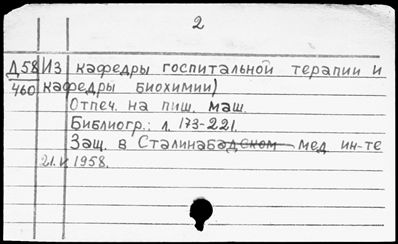 2
Д58 Из кафедры госпитальной терапии и
460 кафедры биохимии)
Отпеч. на пиш. маш.
Библиогр.: л. 173-221.
Защ. в Сталинабадском мед. ин-те
21.V.1958.